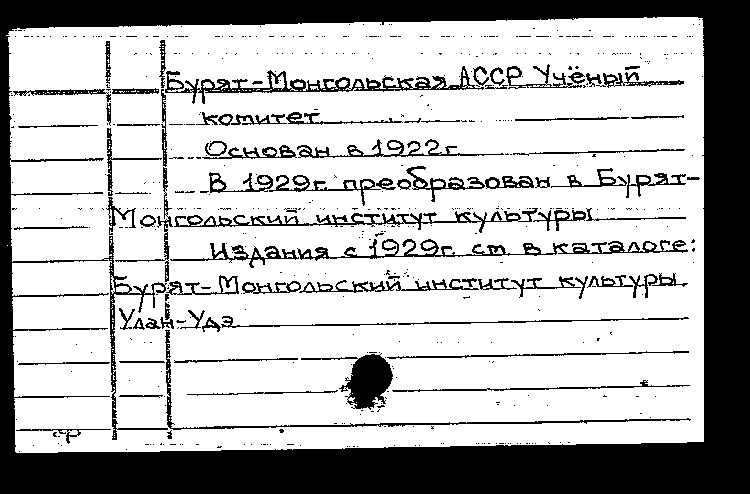 Бурят-Монгольская АССР Учёный
комитет
Основан в 1922г.
В 1929г. преобразован в Бурят-
Монгольский институт культуры.
Издания с 1929г. см. в каталоге:
Бурят-Монгольский институт культуры.
Улан-Удэ